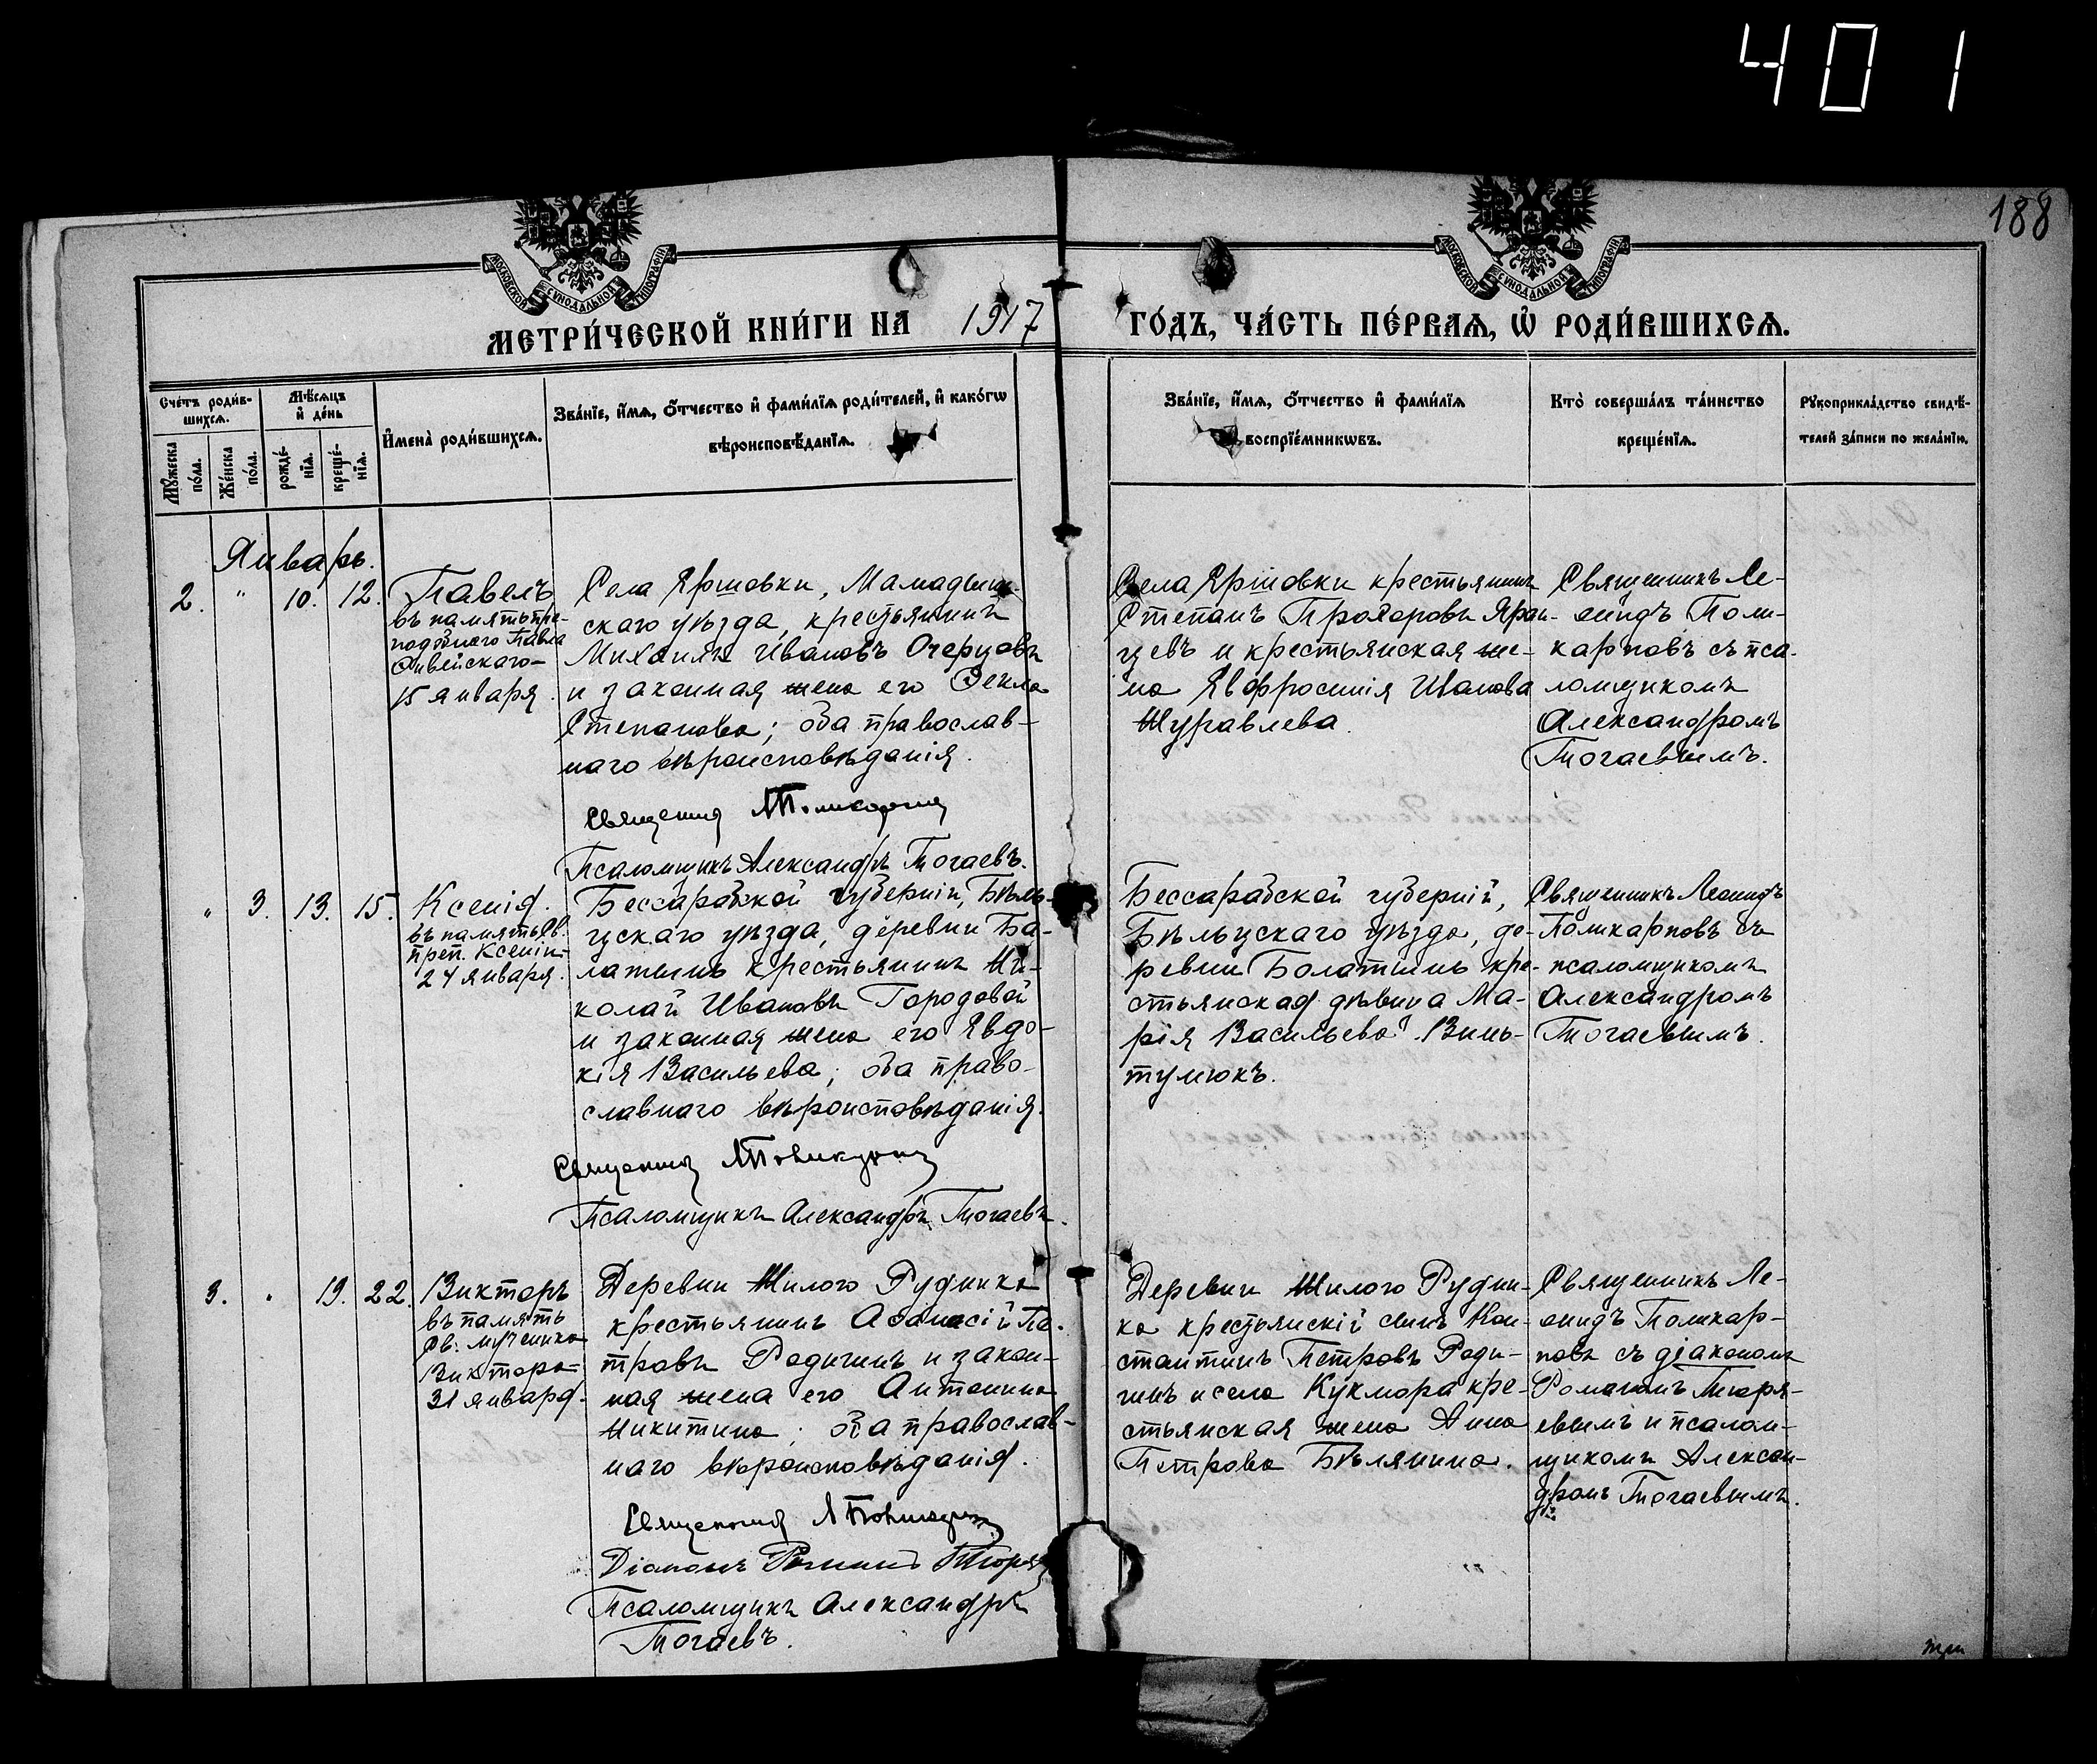 401
188
МОСКОВСКОЙ СѴНОДАЛЬНОЙ ТИПОГРАФІИ
МОСКОВСКОЙ СѴНОДАЛЬНОЙ ТИПОГРАФІИ
МЕТРИ́ЧЕСКОЙ КНИ́ГИ НА 1917 ГО́ДЪ, ЧА́СТЬ ПЕ́РВАѦ, Ѽ РОДИ́ВШИХСѦ.
Счетъ роди́в-
шихсѧ.
Мꙋжеска
по́ла.
Же́нска
по́ла.
Мѣ́сѧцъ
и҆ де́нь
рожде́-
нїѧ.
креще́-
нїѧ.
И҆мена̀ роди́вшихсѧ.
Зва́нїе, и҆́мѧ, о҆́тчество и҆ фами́лїѧ роди́телей, и҆ како́гѡ
вѣроисповѣ́данїѧ.
Зва́нїе, и҆́мѧ, о҆́тчество и҆ фами́лїѧ
воспрїе́мникѡвъ.
Кто̀ соверша́лъ та́инство
креще́нїѧ.
Рꙋкоприкла́дство свидѣ́-
телей за́писи по жела́нїю.
Январь.
2. " 10. 12.
Павелъ
въ память пре-
подобнаго Павла
Ѳивейскаго
15 января.
Села Яршовки, Мамадыш-
скаго уѣзда, крестьянинъ
Михаилъ Ивановъ Очерцовъ
и законная жена его Ѳекла
Степанова; оба православ-
наго вѣроисповѣданія.
Псаломщикъ Александръ Тогаевъ.
Села Яршовки крестьянинъ
Степанъ Прохоровъ Яран-
цевъ и крестьянская же-
на Явфросинія Иванова
Журавлева.
Священникъ Ле-
онидъ Поли-
карповъ съ пса-
ломщикомъ
Александромъ
Тогаевымъ.
" 3. 13. 15.
Ксенія.
въ память св.
преп. Ксеніи
24 января.
Бессарабской губерніи, Бѣль-
цскаго уѣзда, деревни Ба-
латынь крестьянинъ Ни-
колай Ивановъ Городовой
и законная жена его Явдо-
кія Васильева; оба право-
славнаго вѣроисповѣданія.
Псаломщикъ Александръ Тогаевъ.
Бессарабской губерній,
Бѣльцскаго уѣзда, де-
ревни Болатынь кре-
стьянская дѣвица Ма-
рія Васильева Винь-
тулюкъ.
Священникъ Леонидъ
Поликарповъ съ
псаломщикомъ
Александромъ
Тогаевымъ.
3. " 19. 22.
Викторъ
въ память
св. мученика
Виктора
31 января.
Деревни Жилого Рудника
крестьянинъ Аѳанасій Пе-
тровъ Родигинъ и закон-
ная жена его Антонина
Никитина; оба православ-
наго вѣроисповѣданія.
Псаломщикъ Александръ
Тогаевъ.
Деревни Жилого Рудни-
ка крестьянскій сынъ Кон-
стантинъ Петровъ Роди-
гинъ и села Кукмора кре-
стьянская жена Анна
Петрова Бѣлянина.
Священникъ Ле-
онидъ Поликар-
повъ съ діакономъ
Романомъ Тюря-
евымъ и псалом-
щикомъ Алексан-
дромъ Тогаевымъ.